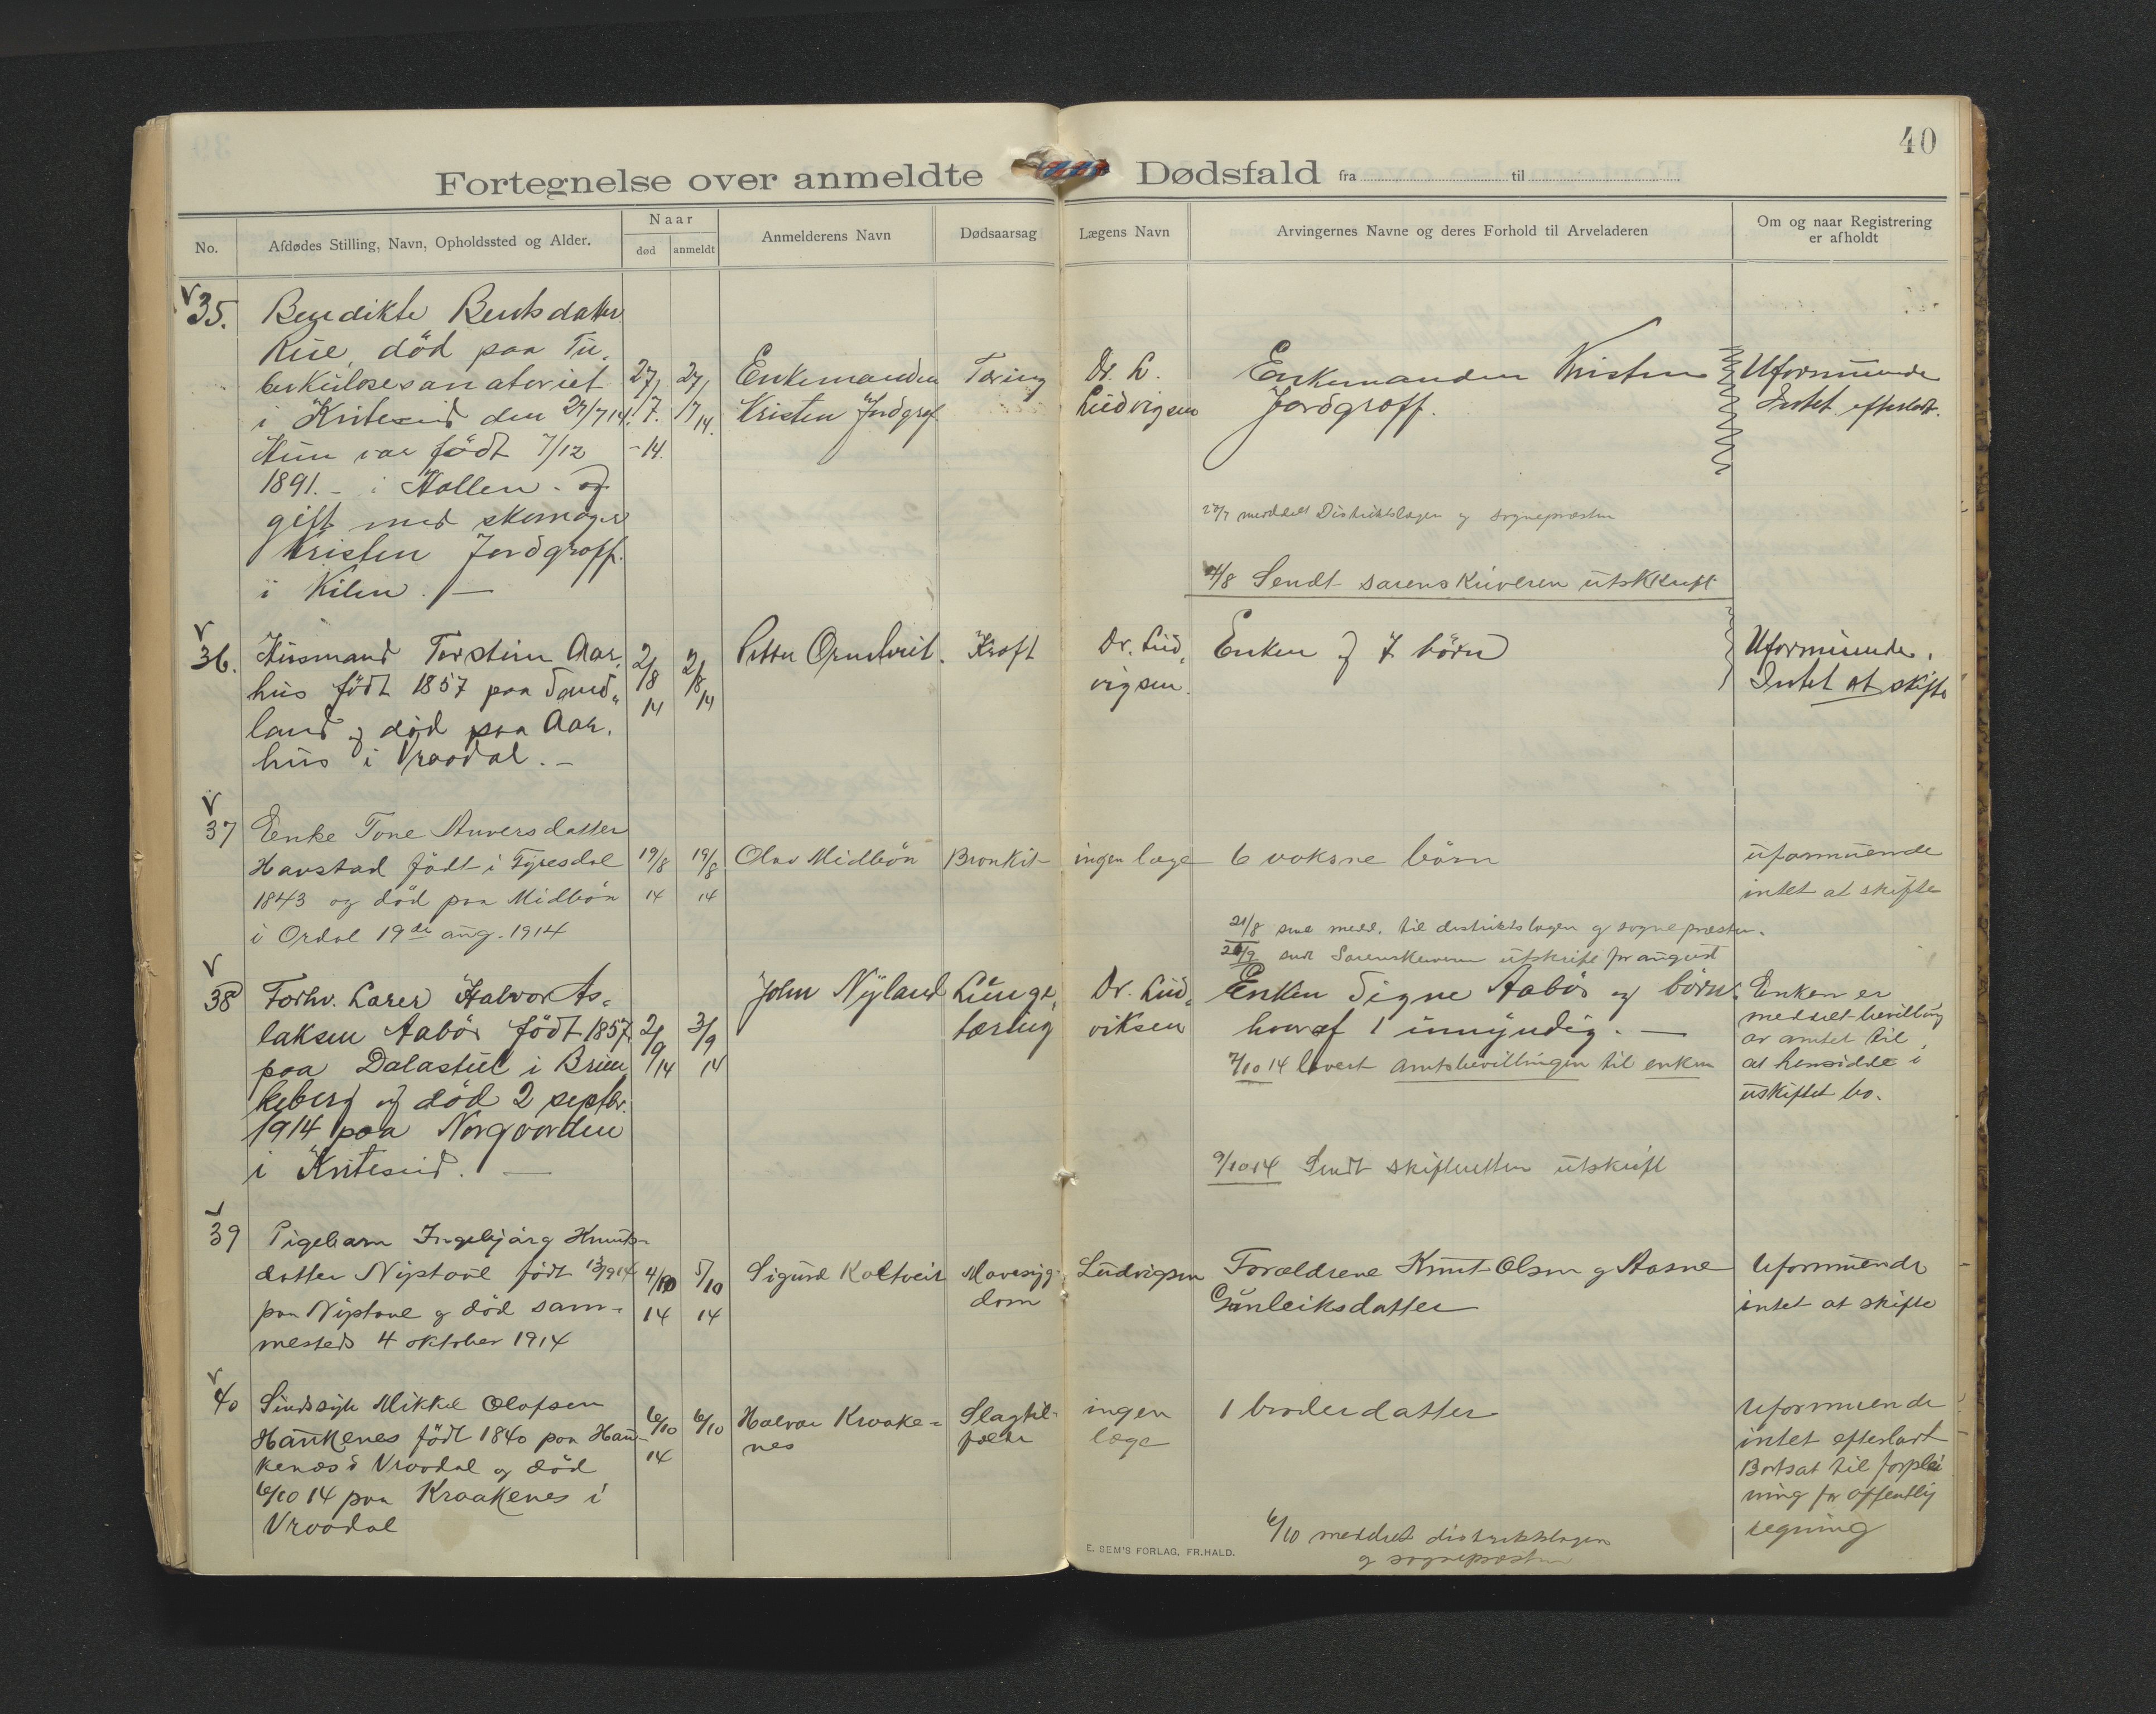 40
Fortegnelse over anmeldte Dødsfald fra til
No.
Afdødes Stilling, Navn, Opholdssted og Alder.
Naar
død
anmeldt
Anmelderens Navn
Dødsaarsag
Lægens Navn
Arvingernes Navne og deres Forhold til Arveladeren
Om og naar Registrering
er afholdt
35.
Bendikte Bentsdatter
Rue, død paa Tu-
berkulosesanatoriet
i Kviteseid den 27/7 14.
Hun var født 7/12
1891. - i Hollen - og
gift med skomager
Kristen Jordgroff.
i Kilen. -
27/
7.
-14.
27/
7
14.
Enkemanden
Kristen Jordgrof.
Tæring
Dr. L.
Ludvigsen
Enkemanden Kristen
Jordgroff.
27/7 meddelt Distriktslægen og sognepræsten
4/8 Sendt sorenskriveren utskrift
Uformuende
Intet efterladt.
36.
Husmand Torstein Aar-
hus født 1857 paa Sand-
land og død paa Aar-
hus i Vraadal. -
2/8
14
2/8
14
Petter
Kræft
Dr. Lud-
vigsen.
Enken og 7 børn
Uformuende.
Intet at skifte
37
Enke Tone Anversdatter
Havstad født i Tyresdal
1843 og død paa Midbøn
i Ordal 19de aug. 1914
19/8
14
19/8
14
Olav Midbøn
Bronkit
ingen læge
6 voksne børn
21/8 medd. til distriktslægen og sognepræsten.
Sorenskriveren utskrift for august
uformuende
intet at skifte
38
Forhv. Lærer Halvor As-
laksen Aabøs født 1857
paa Dalastul i Brun-
keberg og død 2 septbr.
1914 paa Norgaarden
i Kviteseid. -
2/9
14
3/9
14
John Nyland
Lunge-
tæring
Dr. Lud-
viksen
Enken Signe Aabøs og børn
hvoraf 1 umyndig. -
7/10 14 levert amtsbevillingen til enken
9/10 14 Sendt skifteretten utskrift
Enken er
meddelt bevilling
av amtet til
at hensidde i
uskiftet bo.
39
Pigebarn Ingebjørg Knuts-
datter Niptøul født 13/9 14
paa Niptøul og død sam-
mesteds 4 oktober 1914
4/10
14
5/10
14
Sigurd Koltveit
Mavesyg-
dom
Ludvigsen
Forældrene Knut Olsen og Aasne
Gunleiksdatter
Uformuende
intet at skifte
40
Sindssyk Mikkel Olafsen
Haukenes født 1840 paa Hau-
kenæs i Vraadal og død
6/10 14 paa Kraakenes i
Vraadal
6/10
14
6/10
Halvor Kraake-
nes
Slagtil-
fælde
ingen
læge
1 broderdatter
6/10 meddelt distriktslægen
og sognepræsten
Uformuende
intet efterladt
Bortsat til forplei
ning for offentlig
regning
E. SEM'S FORLAG, FR.HALD.